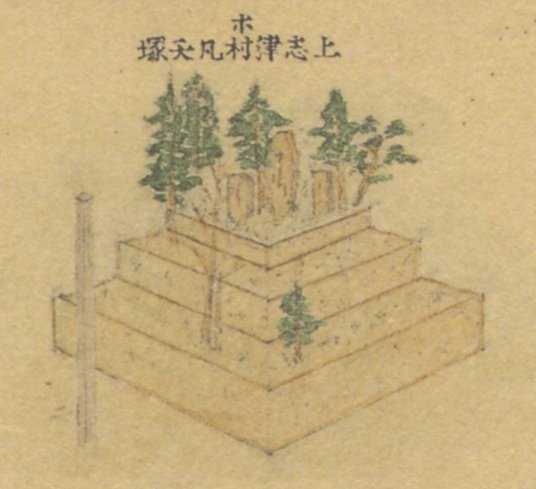 ホ
上志津村凡天塚